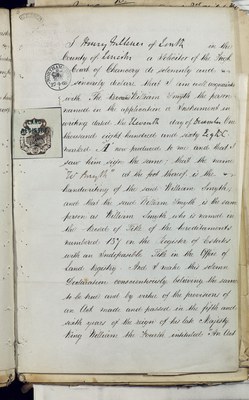 I Henry Gillmer of Louth in the
County of Lincoln a Solicitor of the High
Court of Chancery do solemnly and
sincerely declare that I am well acquainted
with The William Smyth the person
named in the application or Instrument in
writing dated the Eleventh day of December One
thousand eight hundred and sixty Eight
marked A now produced to me and that I
saw him sign the same: that the name
"Wm Smyth" at the foot thereof is the
handwriting of the said William Smyth,
and that the said William Smyth is the same
person as William Smyth who is named in
the Record of Title of the hereditaments
numbered 137 on the Register of Estates
with an Indefeasible Title in the Office of
Land Registry And I make this solemn
Declaration conscientiously believing the same
to be true and by virtue of the provisions of
an Act made and passed in the fifth and
sixth years of the reign of his late Majesty
King William the Fourth intituled An Act